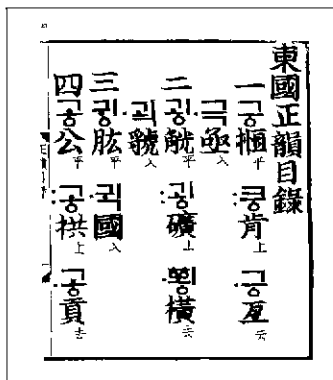 東國正韻目錄
一 긍揯平 :킁肯上 ·긍亙去
·극亟入
二 굉觥平 :굉礦上 ·ᅘᅬᆼ橫去
·괵虢入
三 귕肱平 ·귁國入
四 공公平 :공拱上 ·공貢去